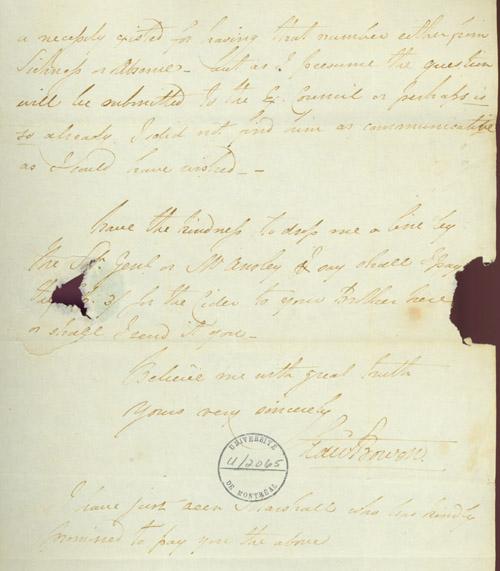 a necessity existed for having that number either from
Sickness or absence – but as I presume the question
will be submitted to the Ex. Council or perhaps is
so already I did not find him as communicative
as I could have wished –
have the kindness to drop me a line by
the Sol. Genl or Mr & say shall I pay
for the Cider to your Brother here
or shall I send it you –
Believe me with great truth
yours very sincerely
Edw Bowen
UNIVERSITÉ
U/2065
DE MONTRÉAL
I have just seen Marshall who has kindly
promised to pay you the above